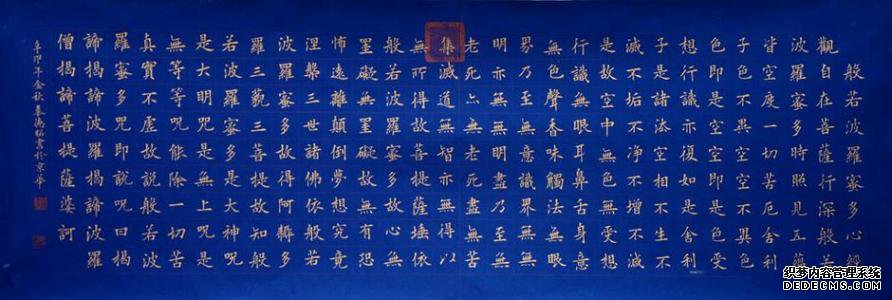 般若波羅蜜多心經
觀自在菩薩行深般若
波羅蜜多時照見五蘊
皆空度一切苦厄舍利
子色不異空空不異色
色即是空空即是色受
想行識亦復如是舍利
子是諸法空相不生不
滅不垢不淨不增不減
是故空中無色無受想
行識無眼耳鼻舌身意
無色聲香味觸法無眼
界乃至無意識界無無
明亦無無明盡乃至無
老死亦無老死盡無苦
集滅道無智亦無得以
無所得故菩提薩埵依
般若波羅蜜多故心無
罣礙無罣礙故無有恐
怖遠離顛倒夢想究竟
涅槃三世諸佛依般若
波羅蜜多故得阿耨多
羅三藐三菩提故知般
若波羅蜜多是大神咒
是大明咒是無上咒是
無等等咒能除一切苦
真實不虛故說般若波
羅蜜多咒即說咒曰揭
諦揭諦波羅揭諦波羅
僧揭諦菩提薩婆訶
辛卯年金秋書於京華
织梦内容管理系统
DEDECMS.COM